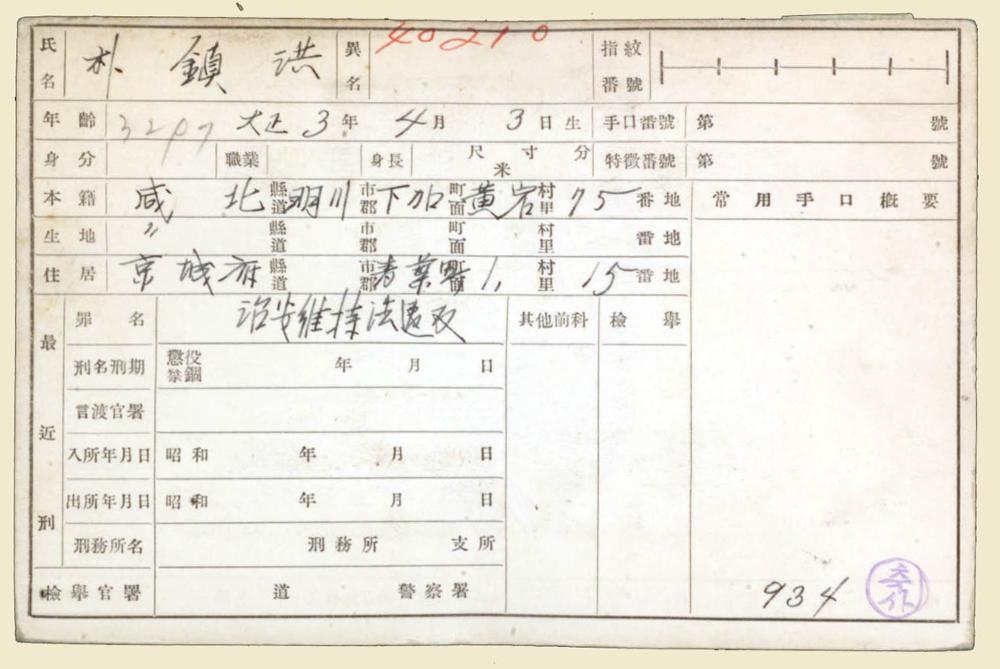 氏名 朴 鎮 洪 異名 40210 指紋番號
年齡 大正 3年 4月 3日生 手口番號 第 號
身分 職業 身長 尺寸分 米 特徵番號 第 號
本籍 咸北 縣道 明川 市郡 下加 町面 黃岩 村里 75 番地 常用手口概要
生地 〃 縣道 市郡 町面 村里 番地
住居 京城府 縣道 市郡 青葉町 町面 1, 村里 15 番地
最近刑
罪名 治安維持法違反 其他前科 檢擧
刑名刑期 懲役 禁錮 年 月 日
言渡官署
入所年月日 昭和 年 月 日
出所年月日 昭和 年 月 日
刑務所名 刑務所 支所
檢擧官署 道 警察署
934